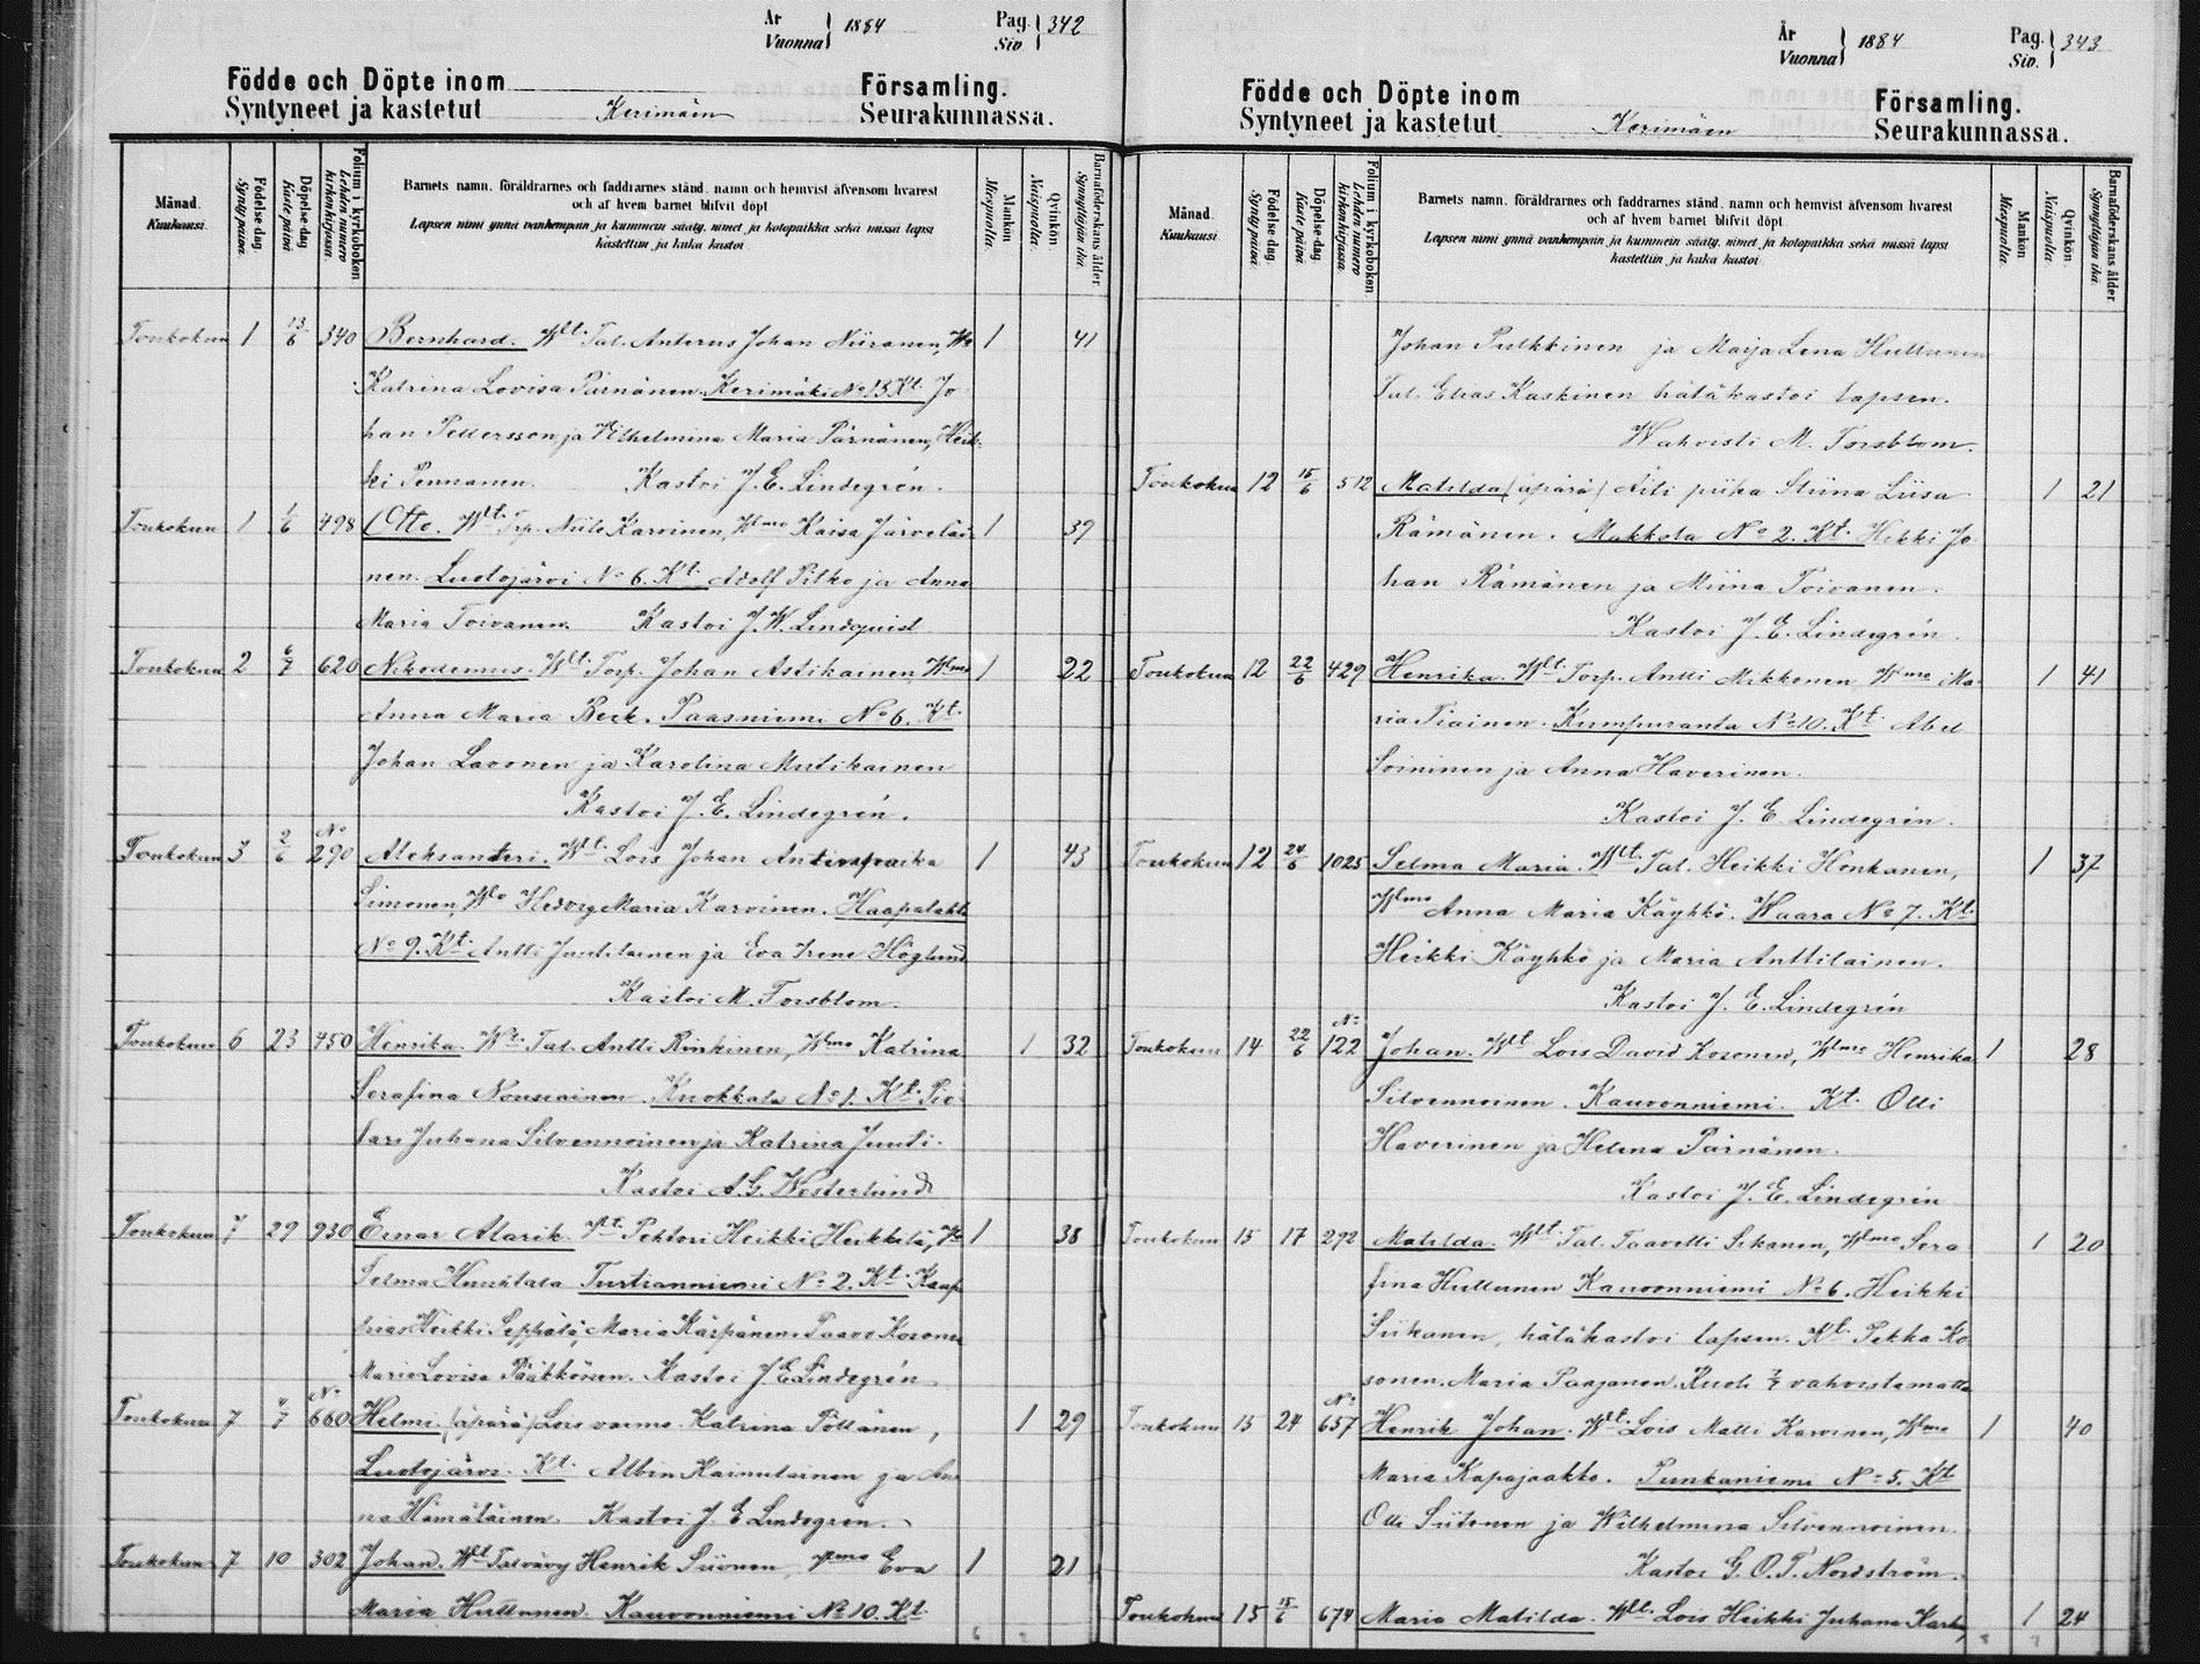 År Vuonna 1884 Pag. Siv. 342
Födde och Döpte inom Församling.
Syntyneet ja kastetut Kerimäen Seurakunnassa.
Månad. Kuukausi. Födelse-dag. Synty päivä. Döpelse-dag. Kaste päivä. Folium i kyrkoboken Lehden numero kirkonkirjassa. Barnets namn, föräldrarnes och faddrarnes stånd, namn och hemvist äfvensom hvarest Mankön Miespuolia. Qvinkön. Naispuolia. Barnaföderskans ålder Synnyttäjän ikä
och af hvem barnet blifvit döpt
Lapsen nimi ynnä vanhempain ja kummein sääty, nimet ja kotopaikka sekä missä lapsi
kastettiin ja kuka kastoi
Toukokuu 1 13/6 340 Bernhard. Wlt. Tal. Anterus Johan Niiranen, Wo 1 41
Katrina Lovisa Pärnänen. Kerimäki No 15 Kt. Jo
han Pettersson ja Wilhelmina Maria Pärnänen, Heik-
ki Pennanen. Kastoi J. E. Lindegrén.
Toukokuu 1 1/6 498 Otto. Wlt. Trp. Niilo Karvinen, Wlmo Kaisa Järveläi- 1 39
nen. Luotojärvi No 6. Kt. Adolf Pitko ja Anna
Maria Toivanen. Kastoi J. W. Lindquist
Toukokuu 2 6/7 620 Nikodemus. Wlt. Torp. Johan Astikainen Wlmo 1 22
Anna Maria Beck. Paasniemi No 6. Kt.
Johan Lavonen ja Karolina Mutikainen
Kastoi J. E. Lindegrén.
Toukokuu 3 2/6 No 290 Aleksanteri. Wlt. Lois Johan Antinpoika 1 43
Simonen, Wlo Hedvig Maria Karvinen. Haapalahti
No 9. Kt. Antti Juutilainen ja Eva Irene Höglund
Kastoi M. Forsblom.
Toukokuu 6 23 450 Henrika. Wt. Tal. Antti Rinkinen, Wlmo Katrina 1 32
Serafina Nousiainen. Kuokkala No 1. Kt. Pie-
tari Juhana Silvennoinen ja Katrina Juuti.
Kastoi A. G. Westerlund
Toukokuu 7 29 930 Einar Alarik. Wlt. Pehtori Heikki Heikkilä, Wo 1 38
Selma Huuhtala Turtianniemi No 2. Kt. Kaup
pias Heikki Seppälä, Maria Kärpänen. Paavo Kosonen
Maria Lovisa Pääkkönen. Kastoi J E Lindegrén.
Toukokuu 7 4/7 No 660 Helmi. (äpärä) Lois vaimo Katrina Pöllänen, 1 29
Luotojärvi. Kt. Albin Kainulainen ja An
na Hämäläinen. Kastoi J. E Lindegren.
Toukokuu 7 10 302 Johan. Wlt Talvävy Henrik Siionen, Wlmo Eva 1 21
Maria Hulttunen. Kauvonniemi No 10. Kt.
År Vuonna 1884 Pag. Siv. 343
Födde och Döpte inom Församling.
Syntyneet ja kastetut Kerimäen Seurakunnassa.
Månad. Kuukausi Födelse-dag. Synty päivä. Döpelse-dag. Kaste päivä. Folium i kyrkoboken Lehden numero kirkonkirjassa. Barnets namn, föräldrarnes och faddrarnes stånd, namn och hemvist äfvensom hvarest Mankön Miespuolia. Qvinkön. Naispuolia. Barnaföderskans ålder Synnyttäjän ikä
och af hvem barnet blifvit döpt.
Lapsen nimi ynnä vanhempain ja kummein sääty, nimet ja kotopaikka sekä missä lapsi
kastettiin ja kuka kastoi
Johan Pulkkinen ja Maija Lena Hulttunen
Tal. Elias Kaskinen hätäkastoi lapsen.
Wahvisti M. Forsblom.
Toukokuu 12 15/6 512 Matilda (äpärä) Äiti piika Stiina Liisa 1 21
Rämänen. Makkola No 2. Kt. Heikki Jo
han Rämänen ja Miina Toivanen.
Kastoi J. E. Lindegrén.
Toukokuu 12 22/6 429 Henrika. Wlt. Torp. Antti Mikkonen Wlmo Ma- 1 41
ria Tiainen. Kumpuranta No 10. Kt. Abel
Soininen ja Anna Haverinen.
Kastoi J. E Lindegrén.
Toukokuu 12 24/6 1025 Selma Maria. Wlt. Tal. Heikki Honkanen, 1 37
Wlmo Anna Maria Käyhkö. Waara No 7. Kt.
Heikki Käyhkö ja Maria Anttilainen.
Kastoi J. E. Lindegrén
Toukokuu 14 22/6 No 122 Johan. Wlt Lois David Kosonen, Wlmo Henrika 1 28
Silvennoinen. Kauvonniemi. Kt. Olli
Haverinen ja Helena Pärnänen.
Kastoi J. E. Lindegrén
Toukokuu 15 17 292 Matilda. Wlt. Tal. Taavetti Sikanen, Wlmo Sera 1 20
fina Hulttunen Kauvonniemi No 6. Heikki
Siikanen, hätäkastoi lapsen. Kt. Pekka Ko
sonen. Maria Paajanen. Kuoli 2/7 vahvistamatta
Toukokuu 15 24 No 657 Henrik Johan. Wlt. Lois Matti Karvinen, Wlmo 1 40
Maria Kapajaakko. Punkaniemi No 5. Kt
Olli Siitonen ja Wilhelmina Silvennoinen.
Kastoi G. O. T. Nordström.
Toukokuu 15 15/6 674 Maria Matilda. Wlt. Lois Heikki Juhana Karh, 1 24